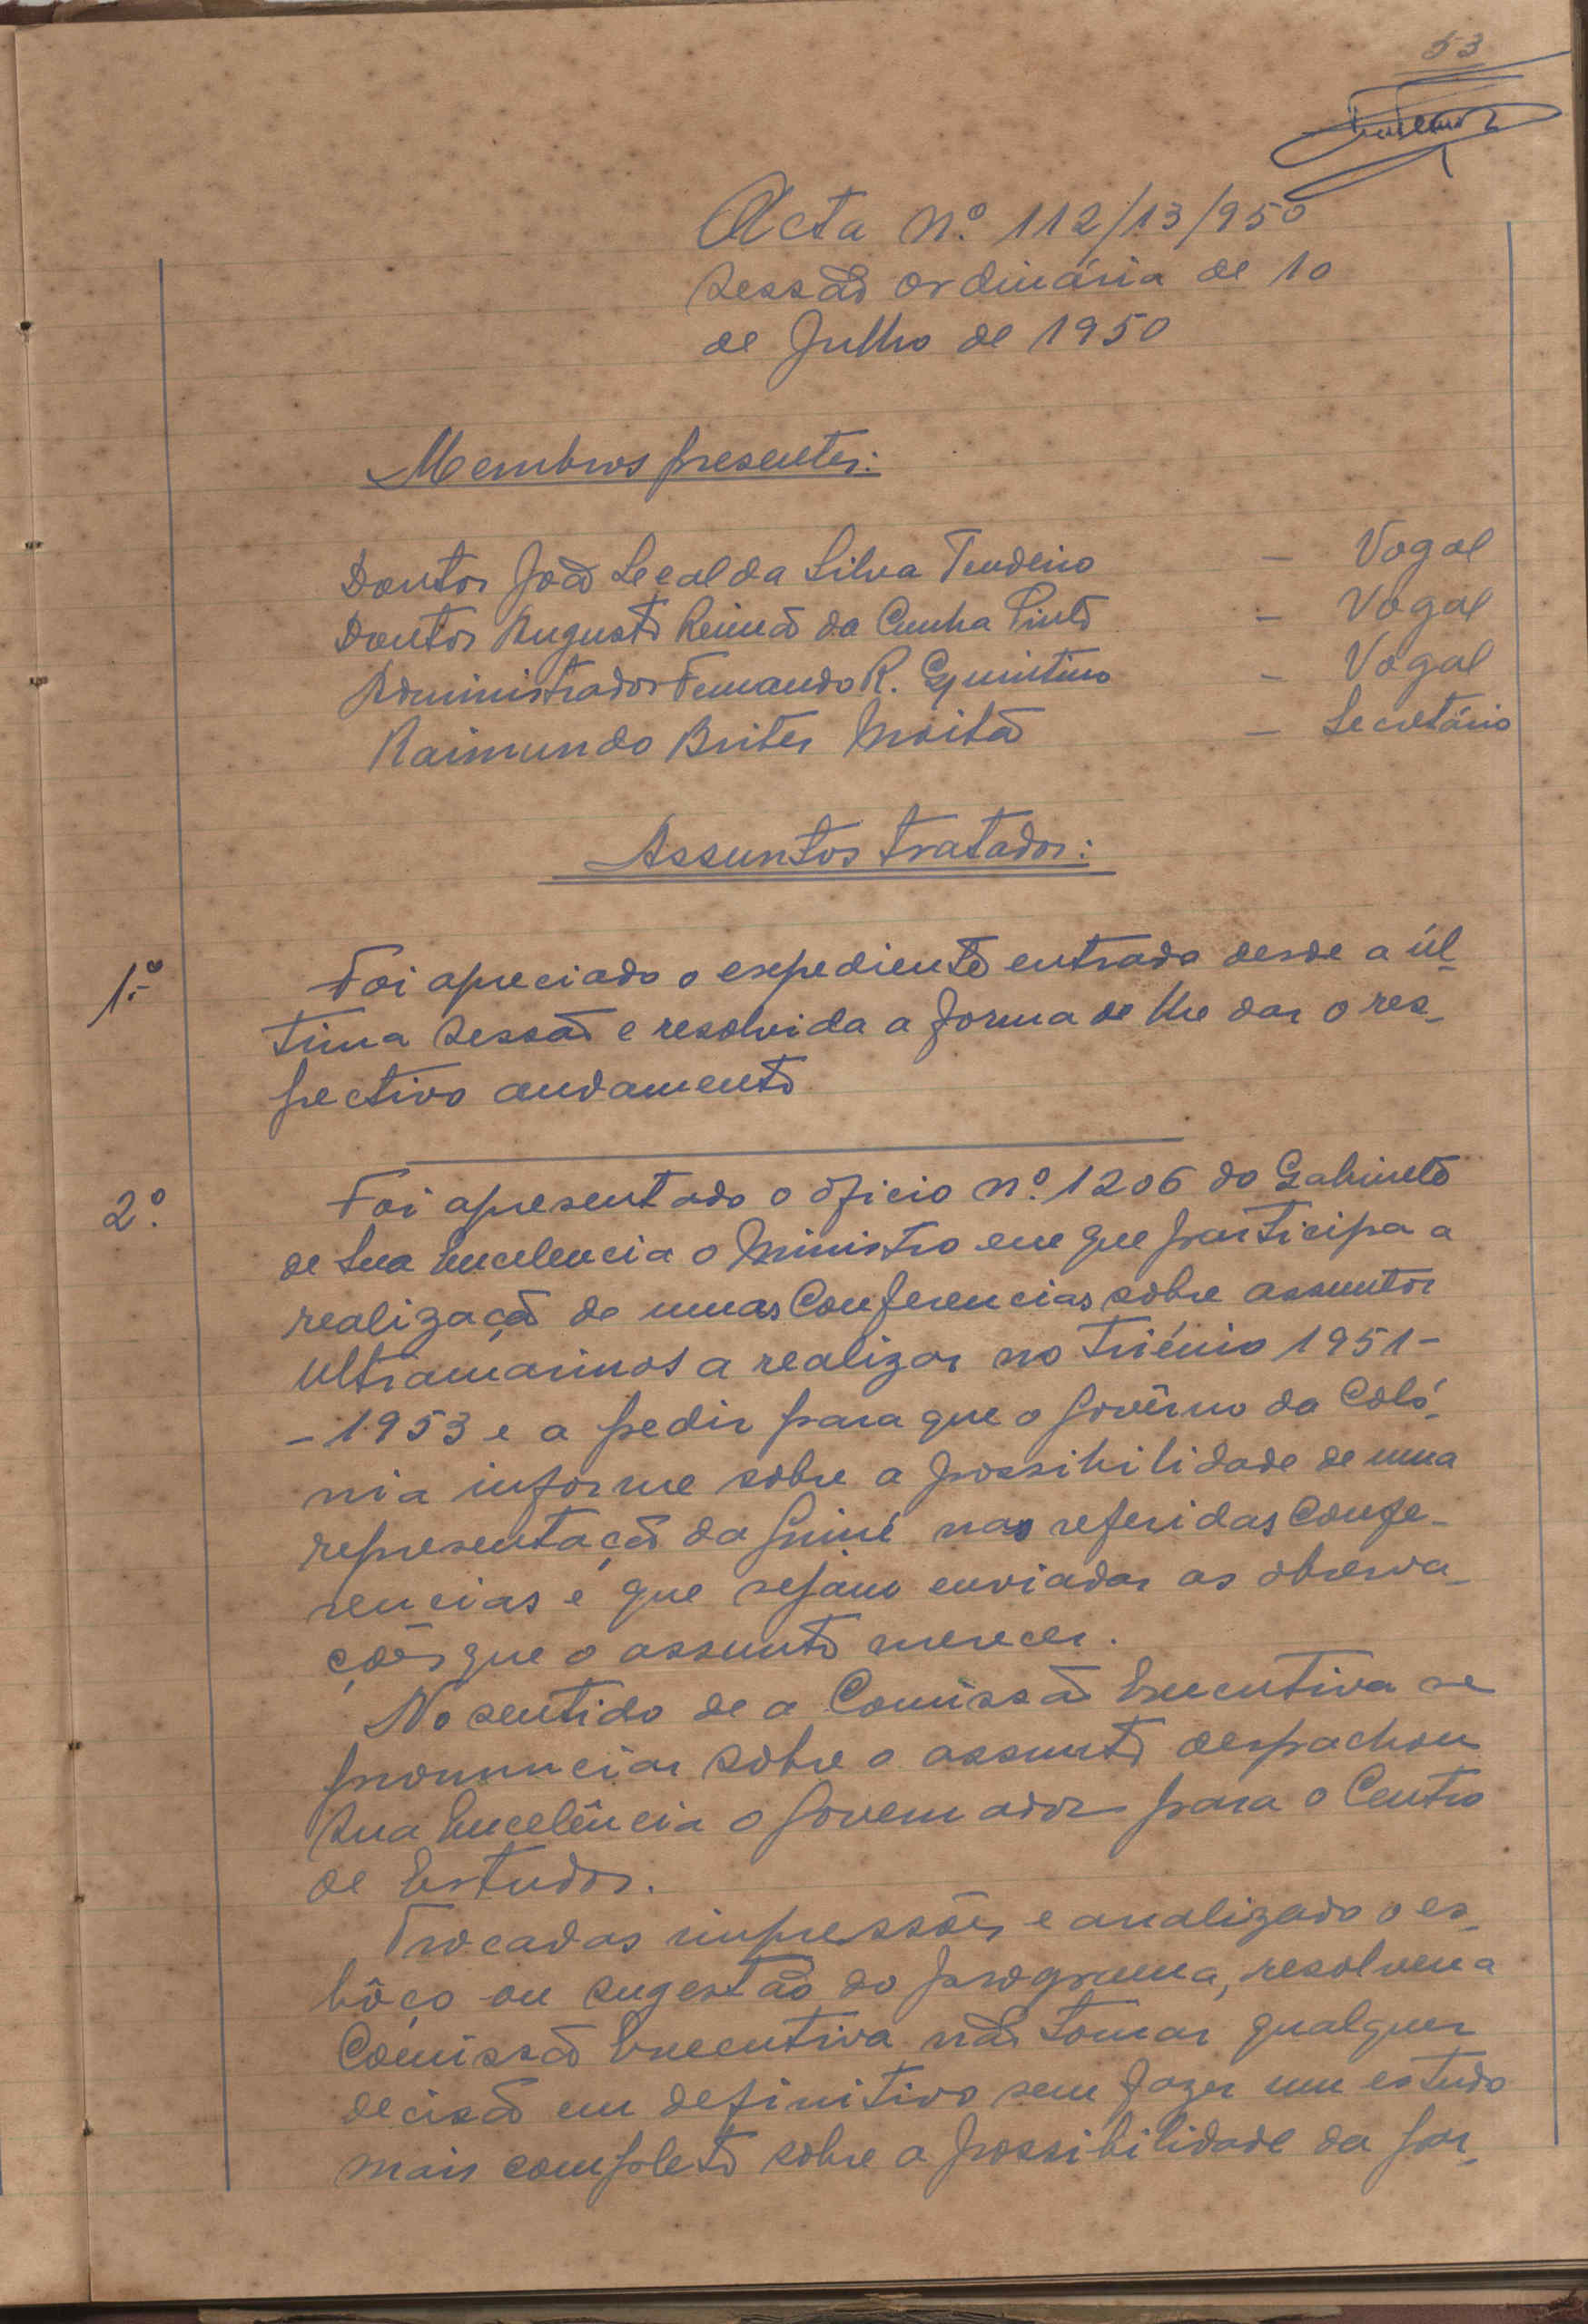 53
Acta n.º 112/13/950
Sessão ordinária de 10
de Julho de 1950
Membros presentes:
Doutor João Leal da Silva Tendeiro — Vogal
Doutor Augusto Reimão da Cunha Pinto — Vogal
Administrador Fernando R. Quintino — Vogal
Raimundo Brites Moita — Secretário
Assuntos tratados:
1.º Foi apreciado o expediente entrado desde a úl-
tima sessão e resolvida a forma de lhe dar o res-
pectivo andamento
2.º Foi apresentado o oficio n.º 1206 do Gabinete
de Sua Excelencia o Ministro em que participa a
realização de umas Conferencias sobre assuntos
Ultramarinos a realizar no triénio 1951-
-1953 e a pedir para que o Govêrno da Coló-
nia informe sobre a possibilidade de uma
representação da Guiné nas referidas Confe-
rencias e que sejam enviadas as observa-
ções que o assunto merecer.
No sentido de a Comissão Executiva se
pronunciar sobre o assunto despachou
Sua Excelência o Governador para o Centro
de Estudos.
Trocadas impressões e analizado o es-
bôço ou sugestão do programa, resolveu a
Comissão Executiva não tomar qualquer
decisão em definitivo sem fazer um estudo
mais completo sobre a possibilidade da par-